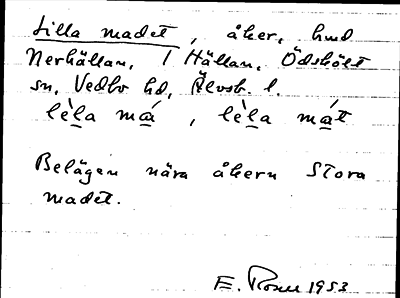 Lilla madet, åker, hmd
Nerhällan, 1 Hällan, Ödskölt
sn, Vedbo hd, Älvsb. l.
lèla má, lèla mát
Belägen nära åkern Stora
madet.
E. Rosell 1953